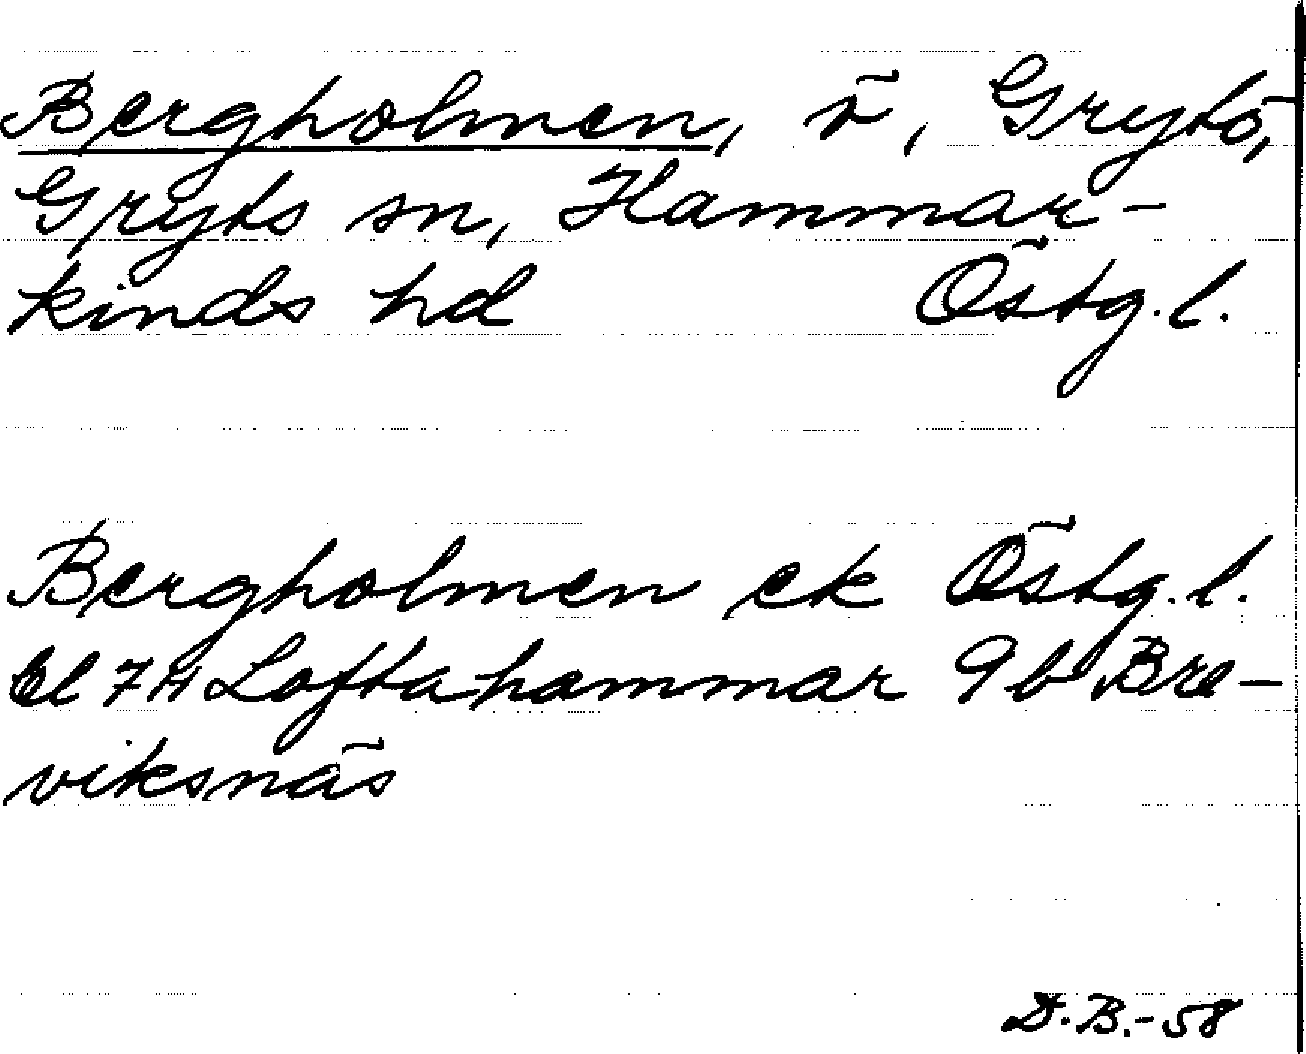 Bergholmen, ö, Grytö,
Gryts sn, Hammar-
kinds hd Östg.l.
Bergholmen ek Östg.l.
Bl 7H Loftahammar 9b Bre-
viksnäs
D.B.-58